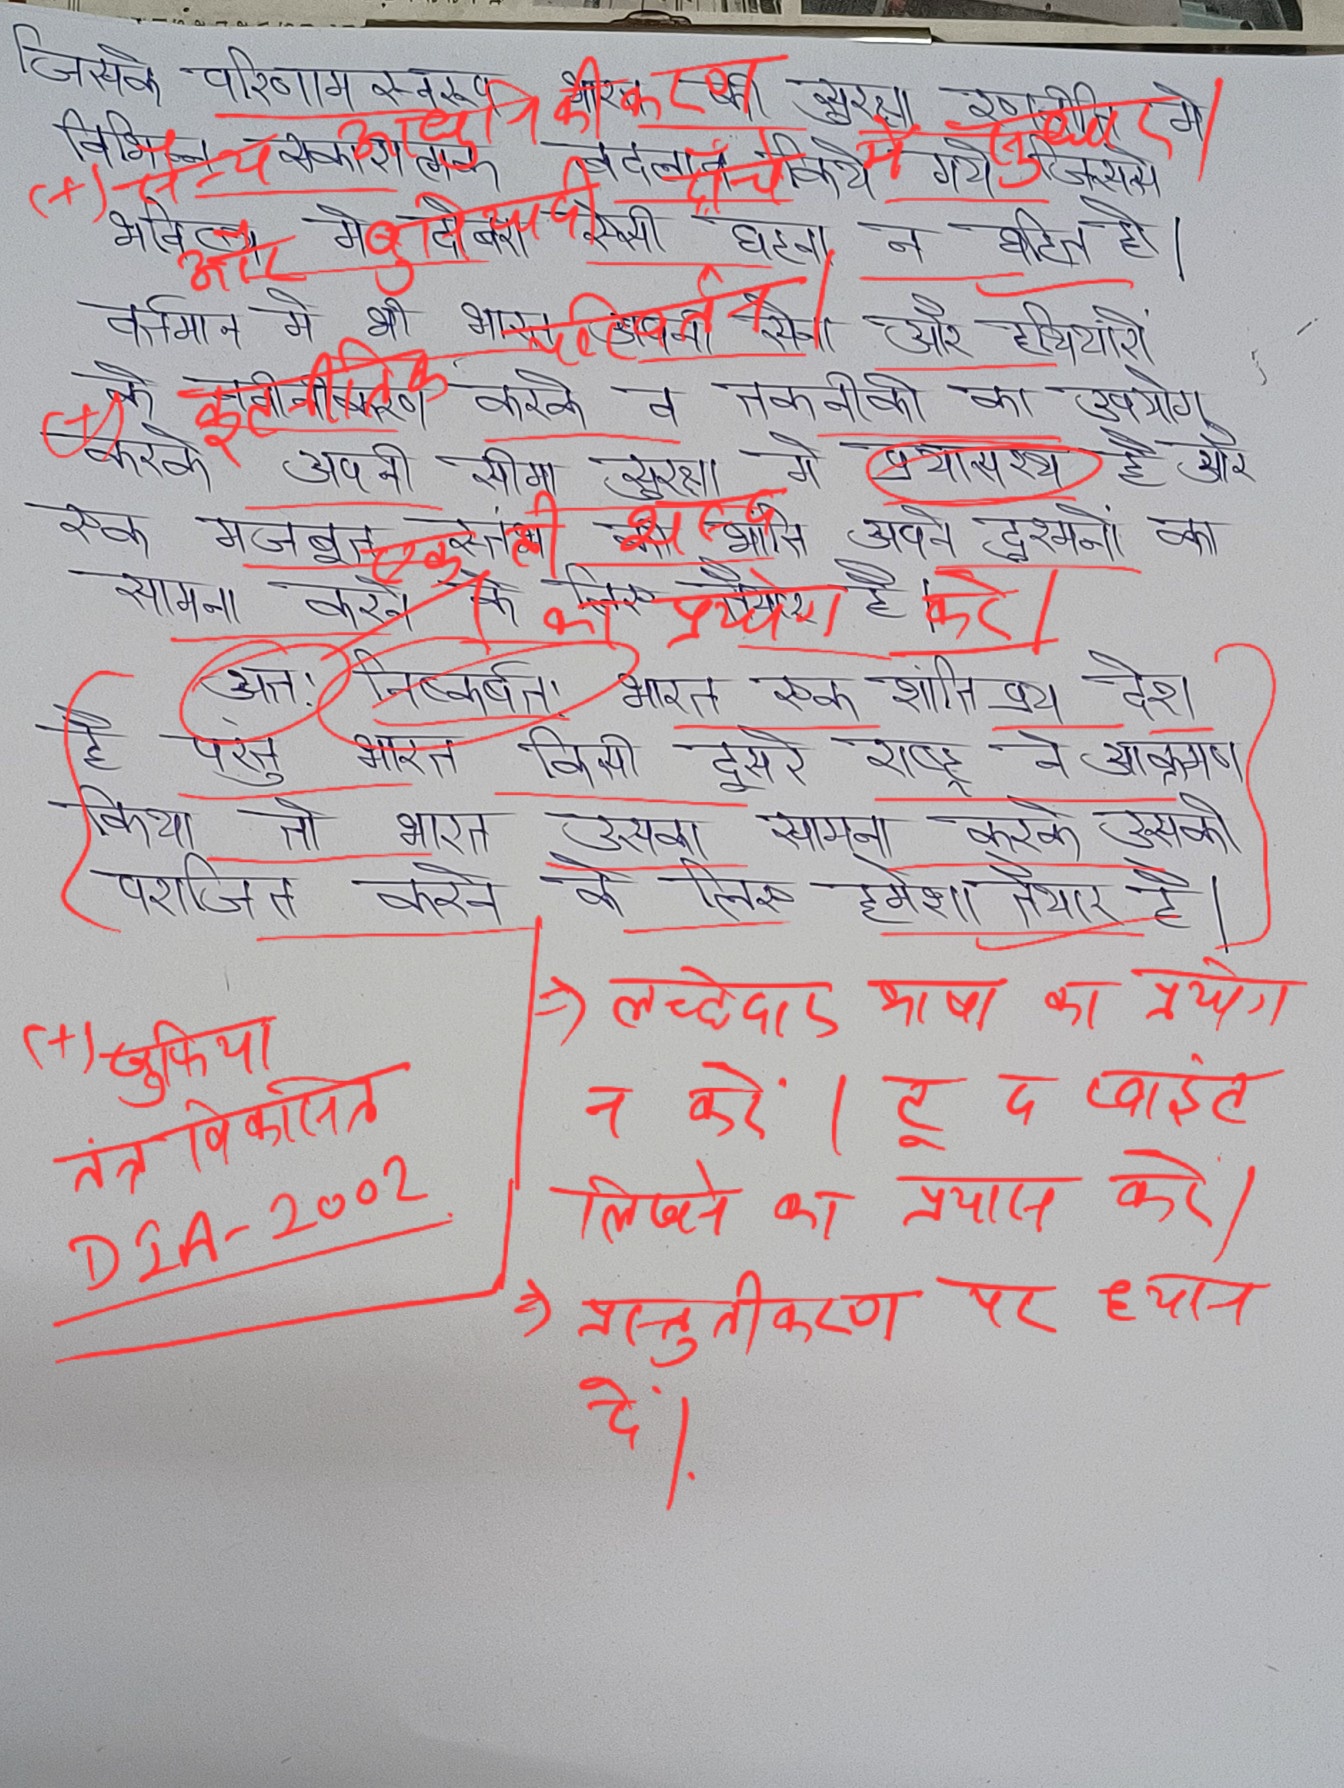 जिसके परिणाम स्वरूप भारत की सुरक्षा रणनीति में
विभिन्न सकारात्मक बदलाव किये गये जिससे
भविष्य में दोबारा ऐसी घटना न घटित हो।
वर्तमान में भी भारत अपनी सेना और हथियारों
के नवीनीकरण करके व तकनीकों का उपयोग
करके अपनी सीमा सुरक्षा में प्रयासरथ है और
एक मजबूत स्तंभ की भाँति अपने दुश्मनों का
सामना करने के लिए तैयार है।
(+) सैन्य आधुनिकीकरण
ढाँचे में सुधार
और बुनियादी
परिवर्तन।
(+) कूटनीतिक
एक ही शब्द
का प्रयोग करें।
अतः निष्कर्षतः भारत एक शांति प्रिय देश
है परंतु भारत किसी दूसरे राष्ट्र ने आक्रमण
किया तो भारत उसका सामना करके उसको
पराजित करने के लिए हमेशा तैयार है।
⇒ लच्छेदार भाषा का प्रयोग
न करें। टू द प्वाइंट
लिखने का प्रयास करें।
⇒ प्रस्तुतीकरण पर ध्यान
दें।
(+) खुफिया
तंत्र विकसित
DIA-2002